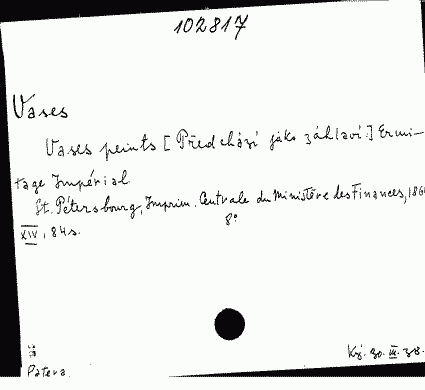 102817
Vases
Vases peints [Předchází jako záhlaví:] Ermi-
tage Impérial.
St. Pétersbourg, Imprim. Centrale du Ministère des Finances, 186
8°
XIV, 84 s.
Patera
Kř. 30. III. 38.